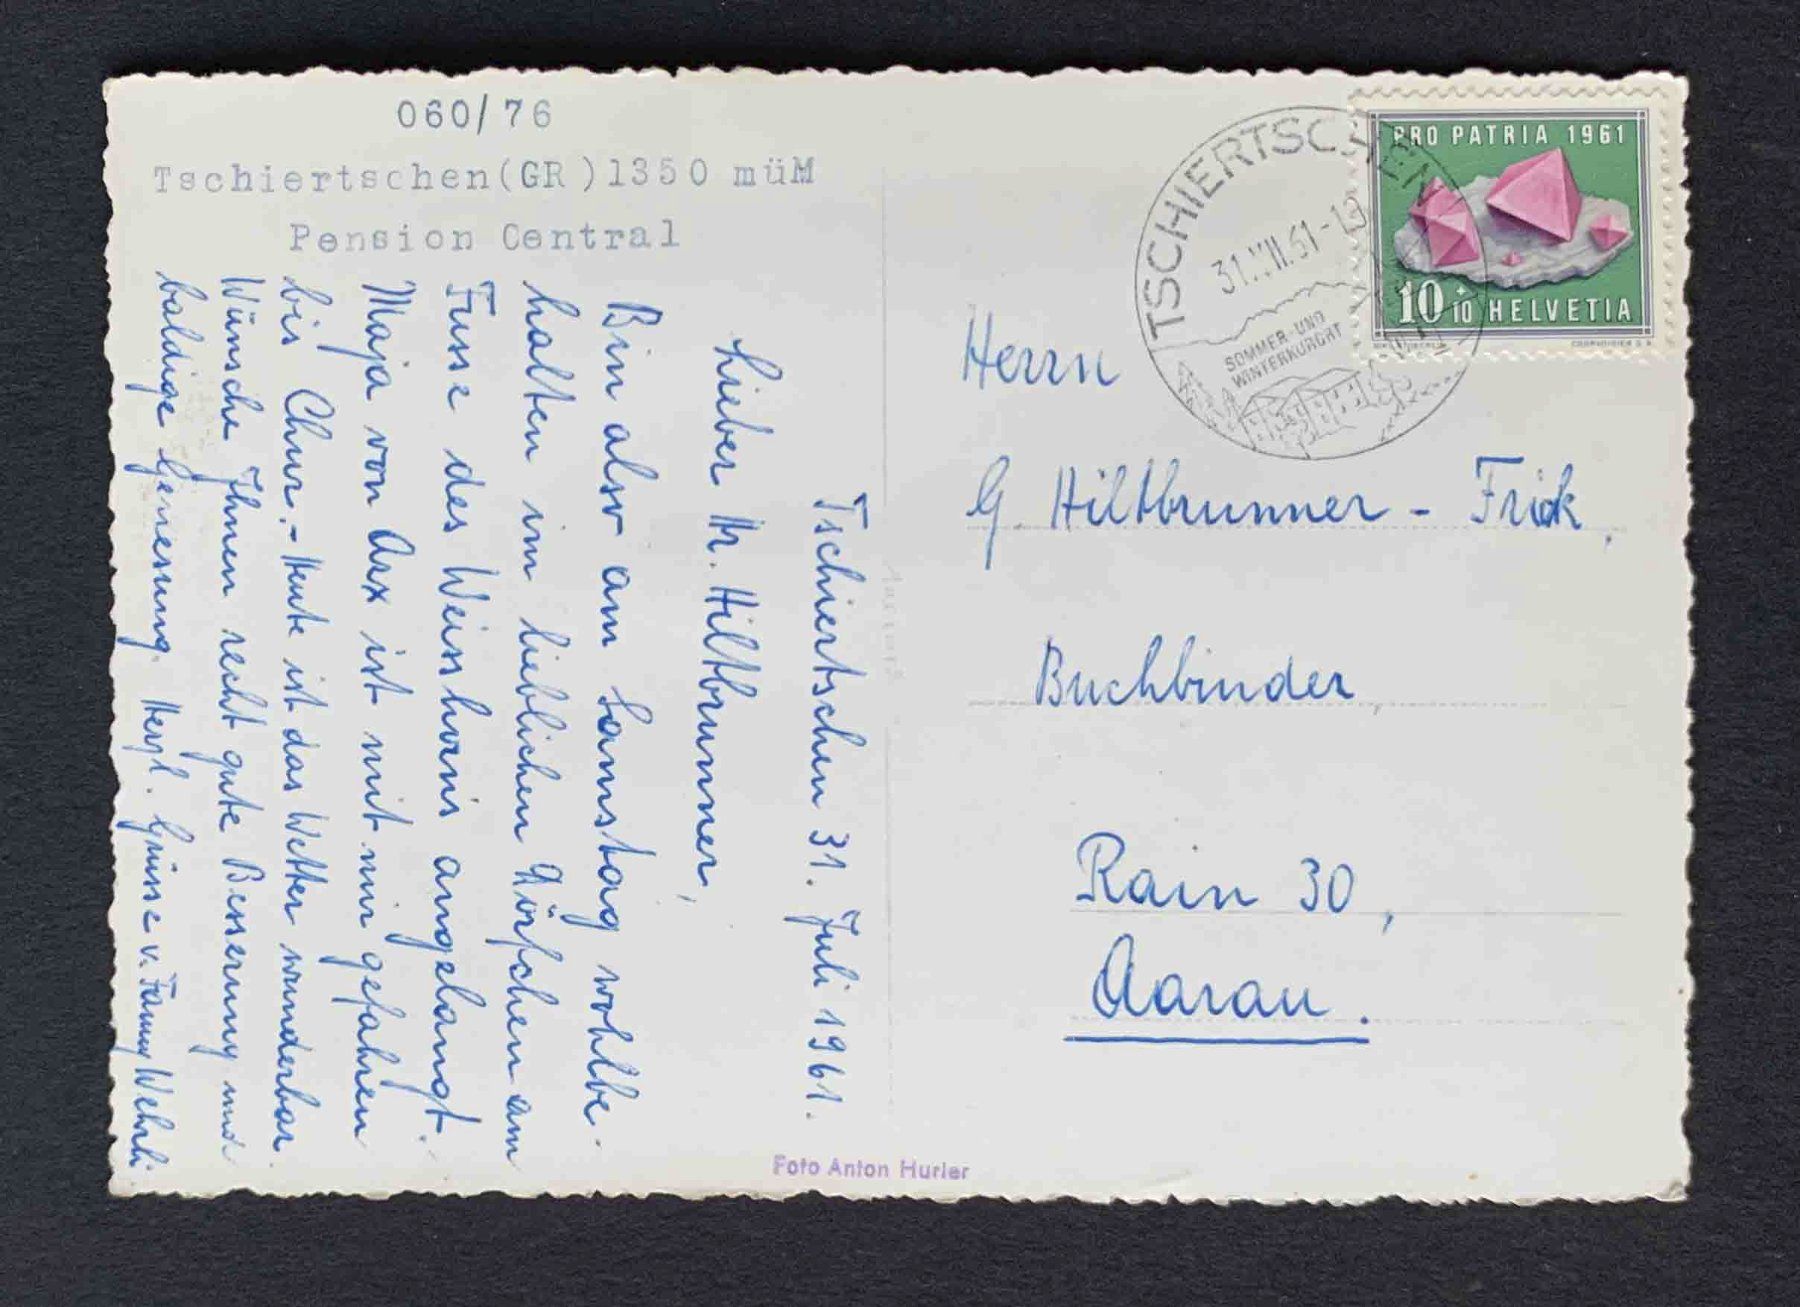 060/76
Tschiertschen(GR)1350 müM
Pension Central
Tschiertschen 31. Juli 1961.
Lieber H. Hiltbrunner,
Bin also am Samstag wohlbe-
halten im lieblichen Dörfchen am
Fusse des Weisshorns angelangt.
Maja von Arx ist mit mir gefahren
bis Chur.- Heute ist das Wetter wunderbar.
Wünsche Ihnen recht gute Besserung und
baldige Genesung. Herzl. Grüsse v. Fanny Wehrli
Foto Anton Hurler
TSCHIERTSCHEN
31.VII.61-18
SOMMER-UND
WINTERKURORT
PRO PATRIA 1961
10+10 HELVETIA
Herrn
G. Hiltbrunner - Frick,
Buchbinder,
Rain 30,
Aarau.